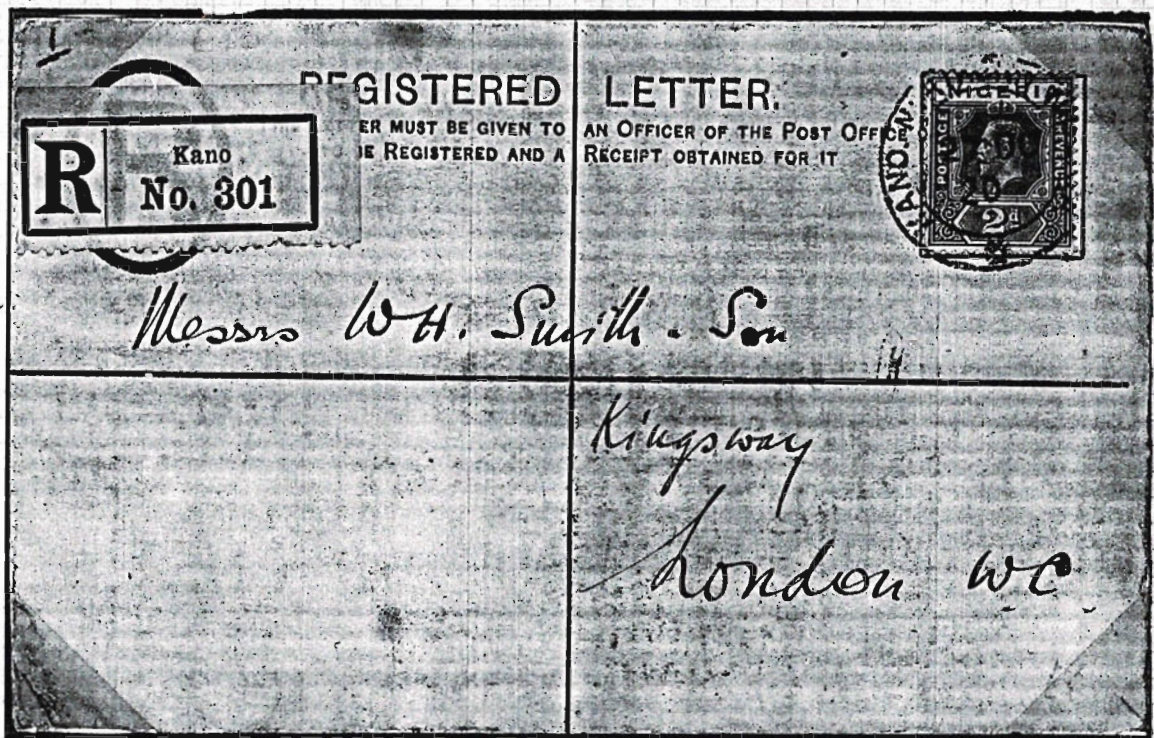 REGISTERED LETTER.
ER MUST BE GIVEN TO AN OFFICER OF THE POST OFFICE
BE REGISTERED AND A RECEIPT OBTAINED FOR IT
R
Kano
No. 301
NIGERIA
POSTAGE
REVENUE
2d
KANO. N.
Messrs W H. Smith - Son
Kingsway
London WC